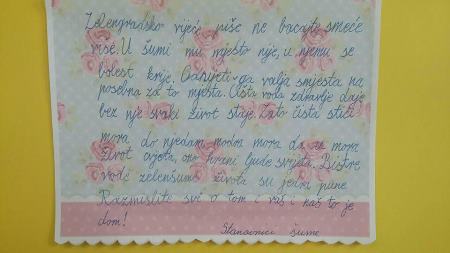 Zelengradsko vijeće piše ne bacajte smeće
više. U šumi mu mjesto nije, u njemu se
bolest krije. Odnijeti ga valja smjesta na
posebna za to mjesta. Čista voda zdravlje daje
bez nje svaki život staje. Zato čista stići
mora do mora modra mora da se mora
život cvjeta, ono hrani ljude svijeta. Bistre
vode zelenšume života su jedri pune
Razmislite svi o tom i vaš i naš to je
dom!
Stanovnici šume